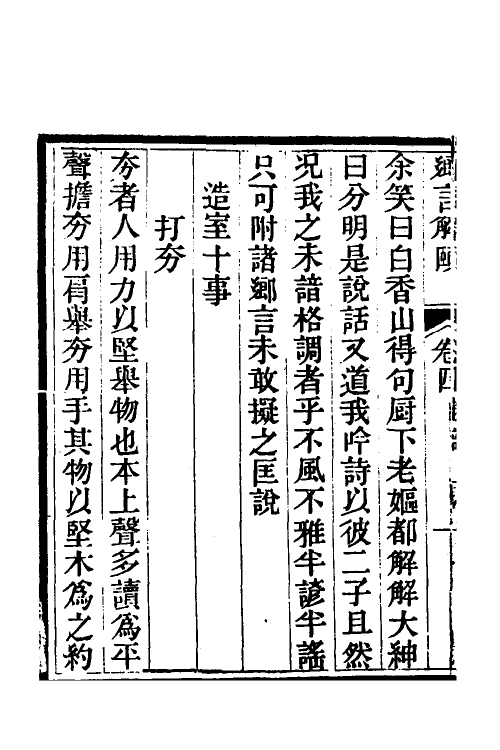 鄉言解頤 卷四
余笑曰白香山得句厨下老嫗都解解大紳
曰分明是說話又道我吟詩以彼二子且然
况我之未諳格調者乎不風不雅半諺半謠
只可附諸鄉言未敢擬之匡說
造室十事
打夯
夯者人用力以堅舉物也本上聲多讀爲平
聲擔夯用肩舉夯用手其物以堅木爲之約